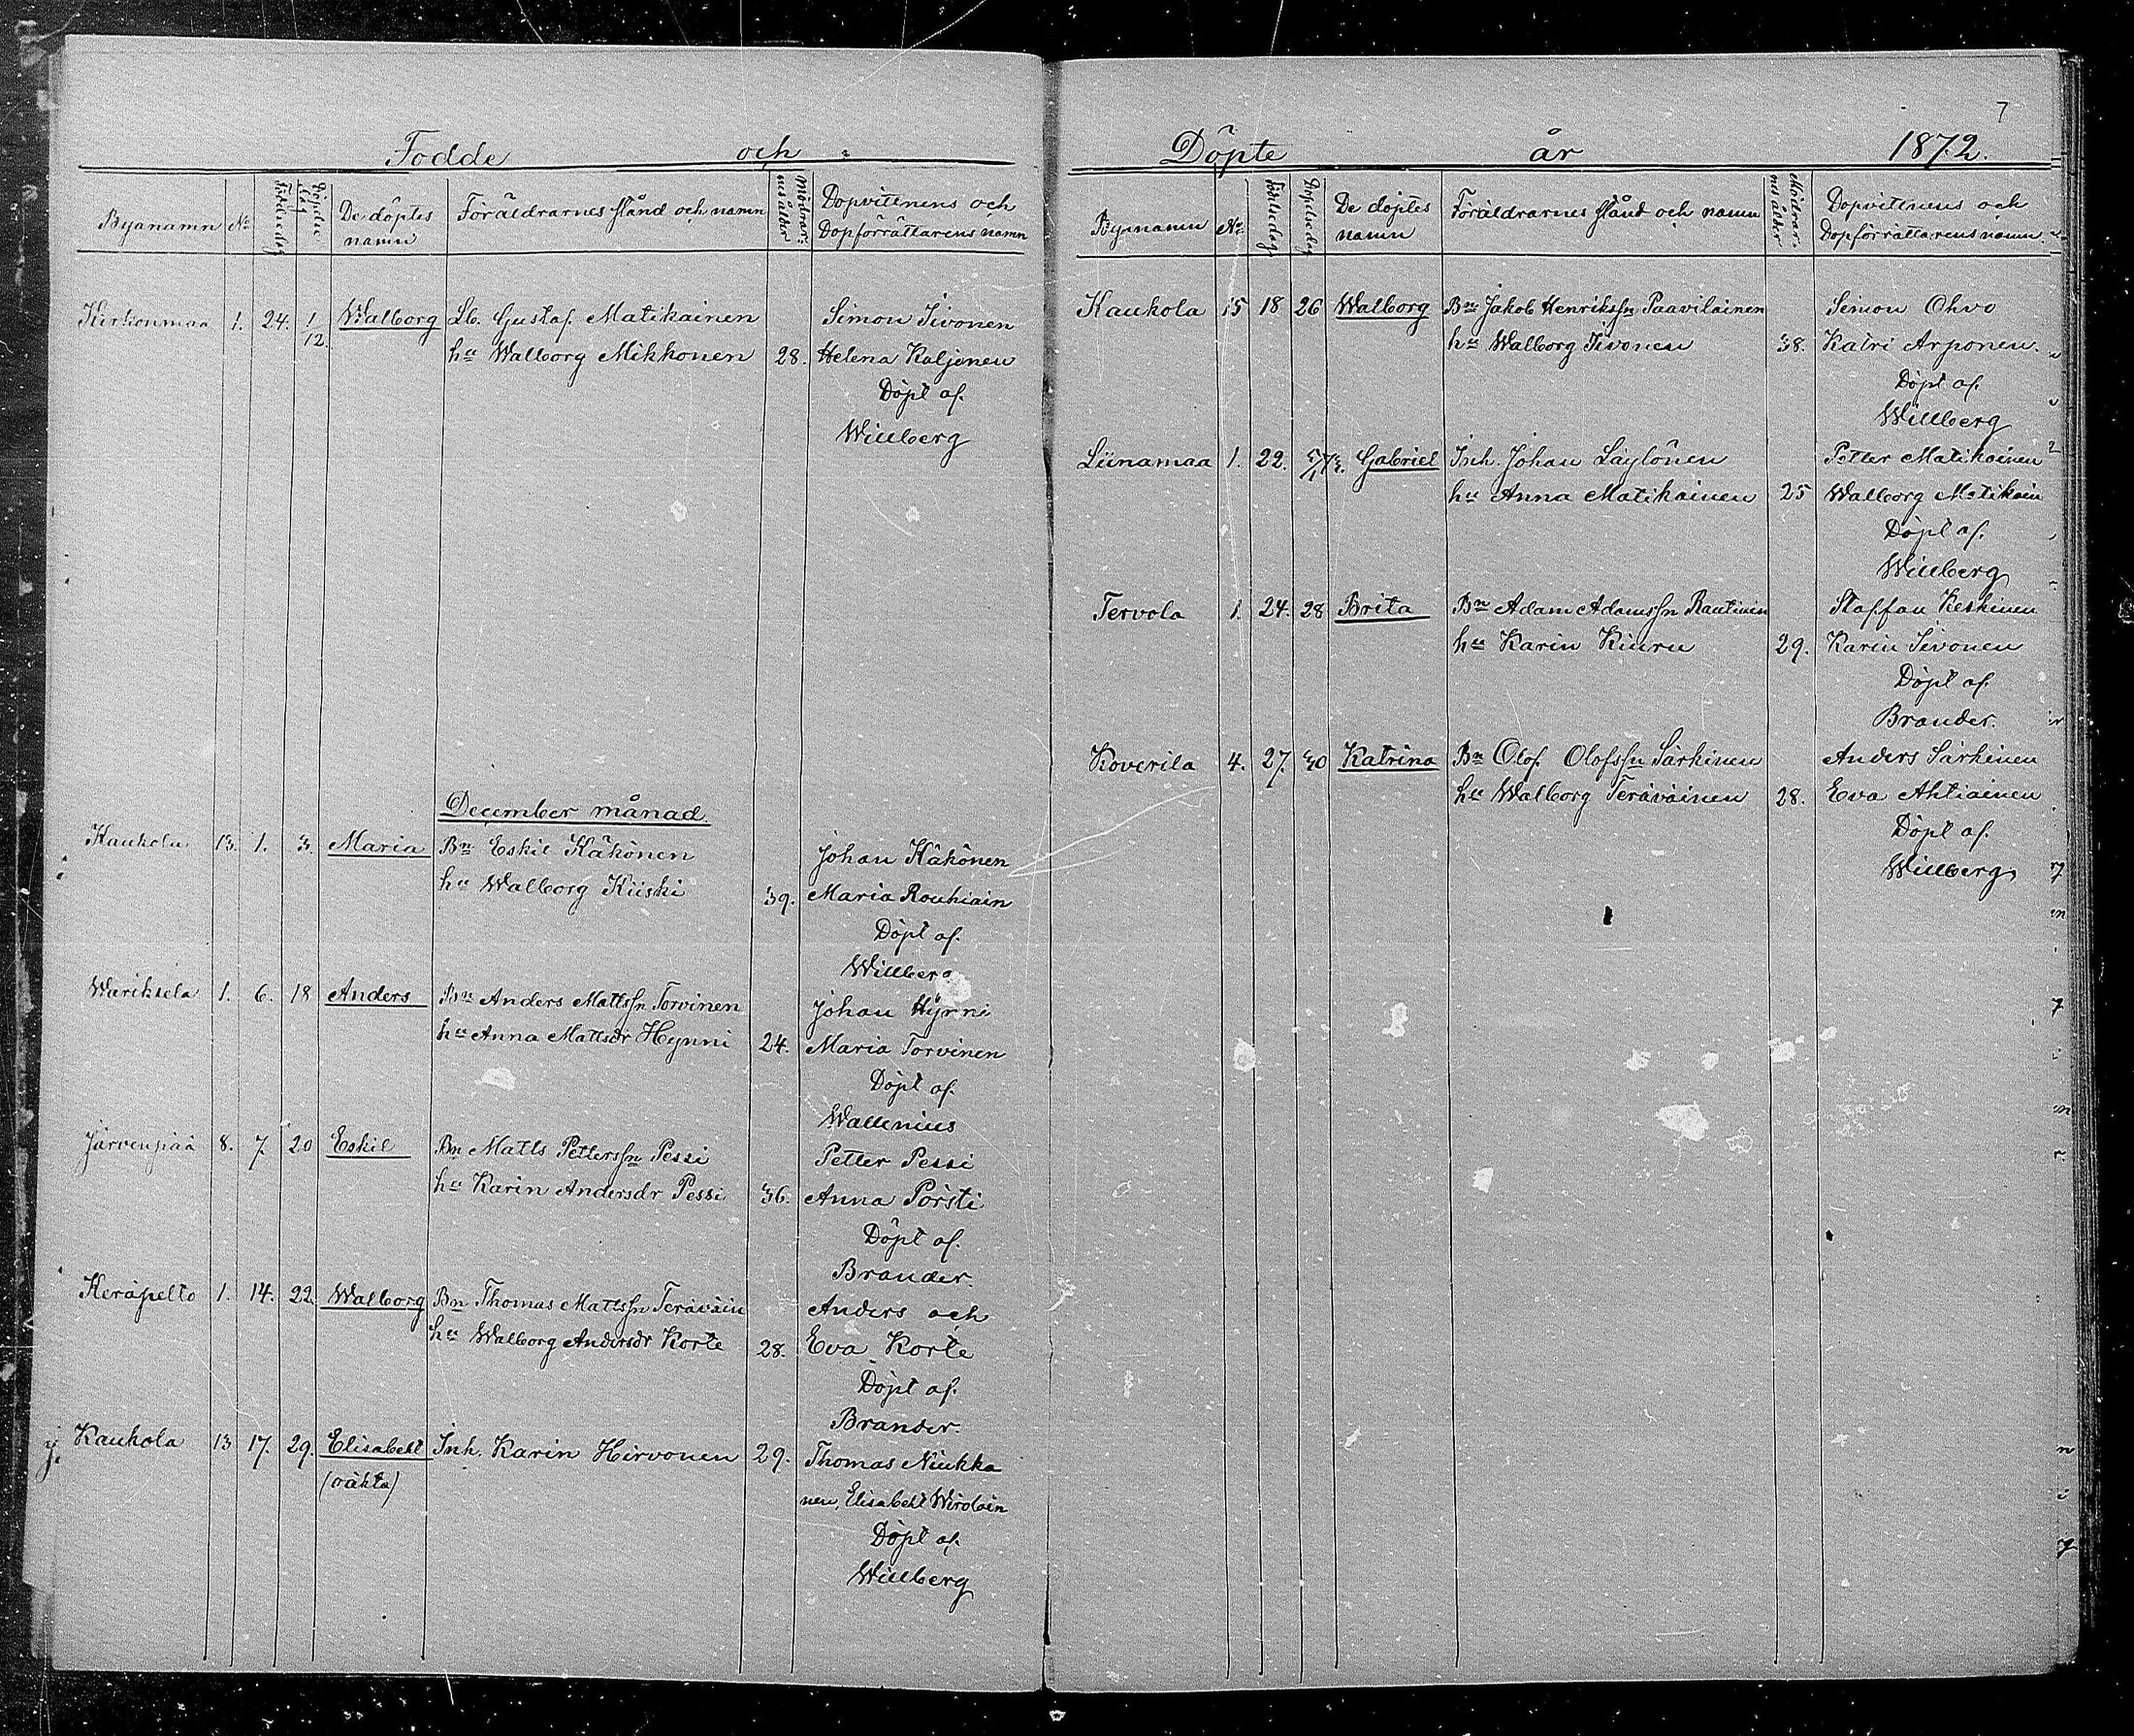 7
Födde och
Byanamn No Födelsedag Döpelsedag De döptes namn Föräldrarnes stånd och namn Mödrarnes ålder Dopvittnens och Dopförrättarens namn
Kirkonmaa 1. 24. 1/12. Walborg Lb. Gustaf Matikainen Simon Sivonen
hu Walborg Mikkonen 28. Helena Kuljonen
Döpt af
Willberg
December månad.
Kaukola 13. 1. 3. Maria Bn Eskil Käkönen Johan Käkönen
hu Walborg Kiiski 39. Maria Rouhiain
Döpt af
Willberg
Wariksela 1. 6. 18 Anders Bn Anders Mattssn Torvinen Johan
hu Anna Mattsdr Hynni 24. Maria Torvinen
Döpt af
Wallenius
Järvenpää 8. 7. 20 Eskil Bn Matts Petterssn Pessi Petter Pessi
hu Karin Andersdr Pessi 36. Anna Pörsti
Döpt af
Brander.
Keräpelto 1. 14. 22. Walborg Bn Thomas Mattssn Teräväin Anders och
hu Walborg Andersdr Korte 28. Eva Korte
Döpt af
Brander.
Kaukola 13 17. 29. Elisabeht Inh. Karin Hirvonen 29. Thomas Niukka
(oäkta) nen, Elisabeht Wirolain
Döpt af
Willberg
Döpte år 1872.
Byanamn No Födelsedag Döpelsedag De döptes namn Föräldrarnes stånd och namn Mödrarnes ålder Dopvittnens och Dopförrättarens namn.
Kaukola 15 18 26 Walborg Bn Jakob Henrikssn Paavilainen Simon Ohvo
hu Walborg Sivonen 38. Katri Arponen.
Döpt af
Willberg
Liinamaa 1. 22. Gabriel Inh. Johan Läylönen Petter Matikainen
hu Anna Matikainen 25 Walborg Matikain
Döpt af
Willberg
Tervola 1. 24. 28 Brita Bn Adam Adamssn Rautiain Staffan Keskinen
hu Karin Kiuru 29. Karin Sivonen
Döpt af
Brander.
Koverila 4. 27. 30 Katrina Bn Olof Olofssn Särkinen Anders Särkinen
hu Walborg Teräväinen 28. Eva Ahtiainen
Döpt af
Willberg